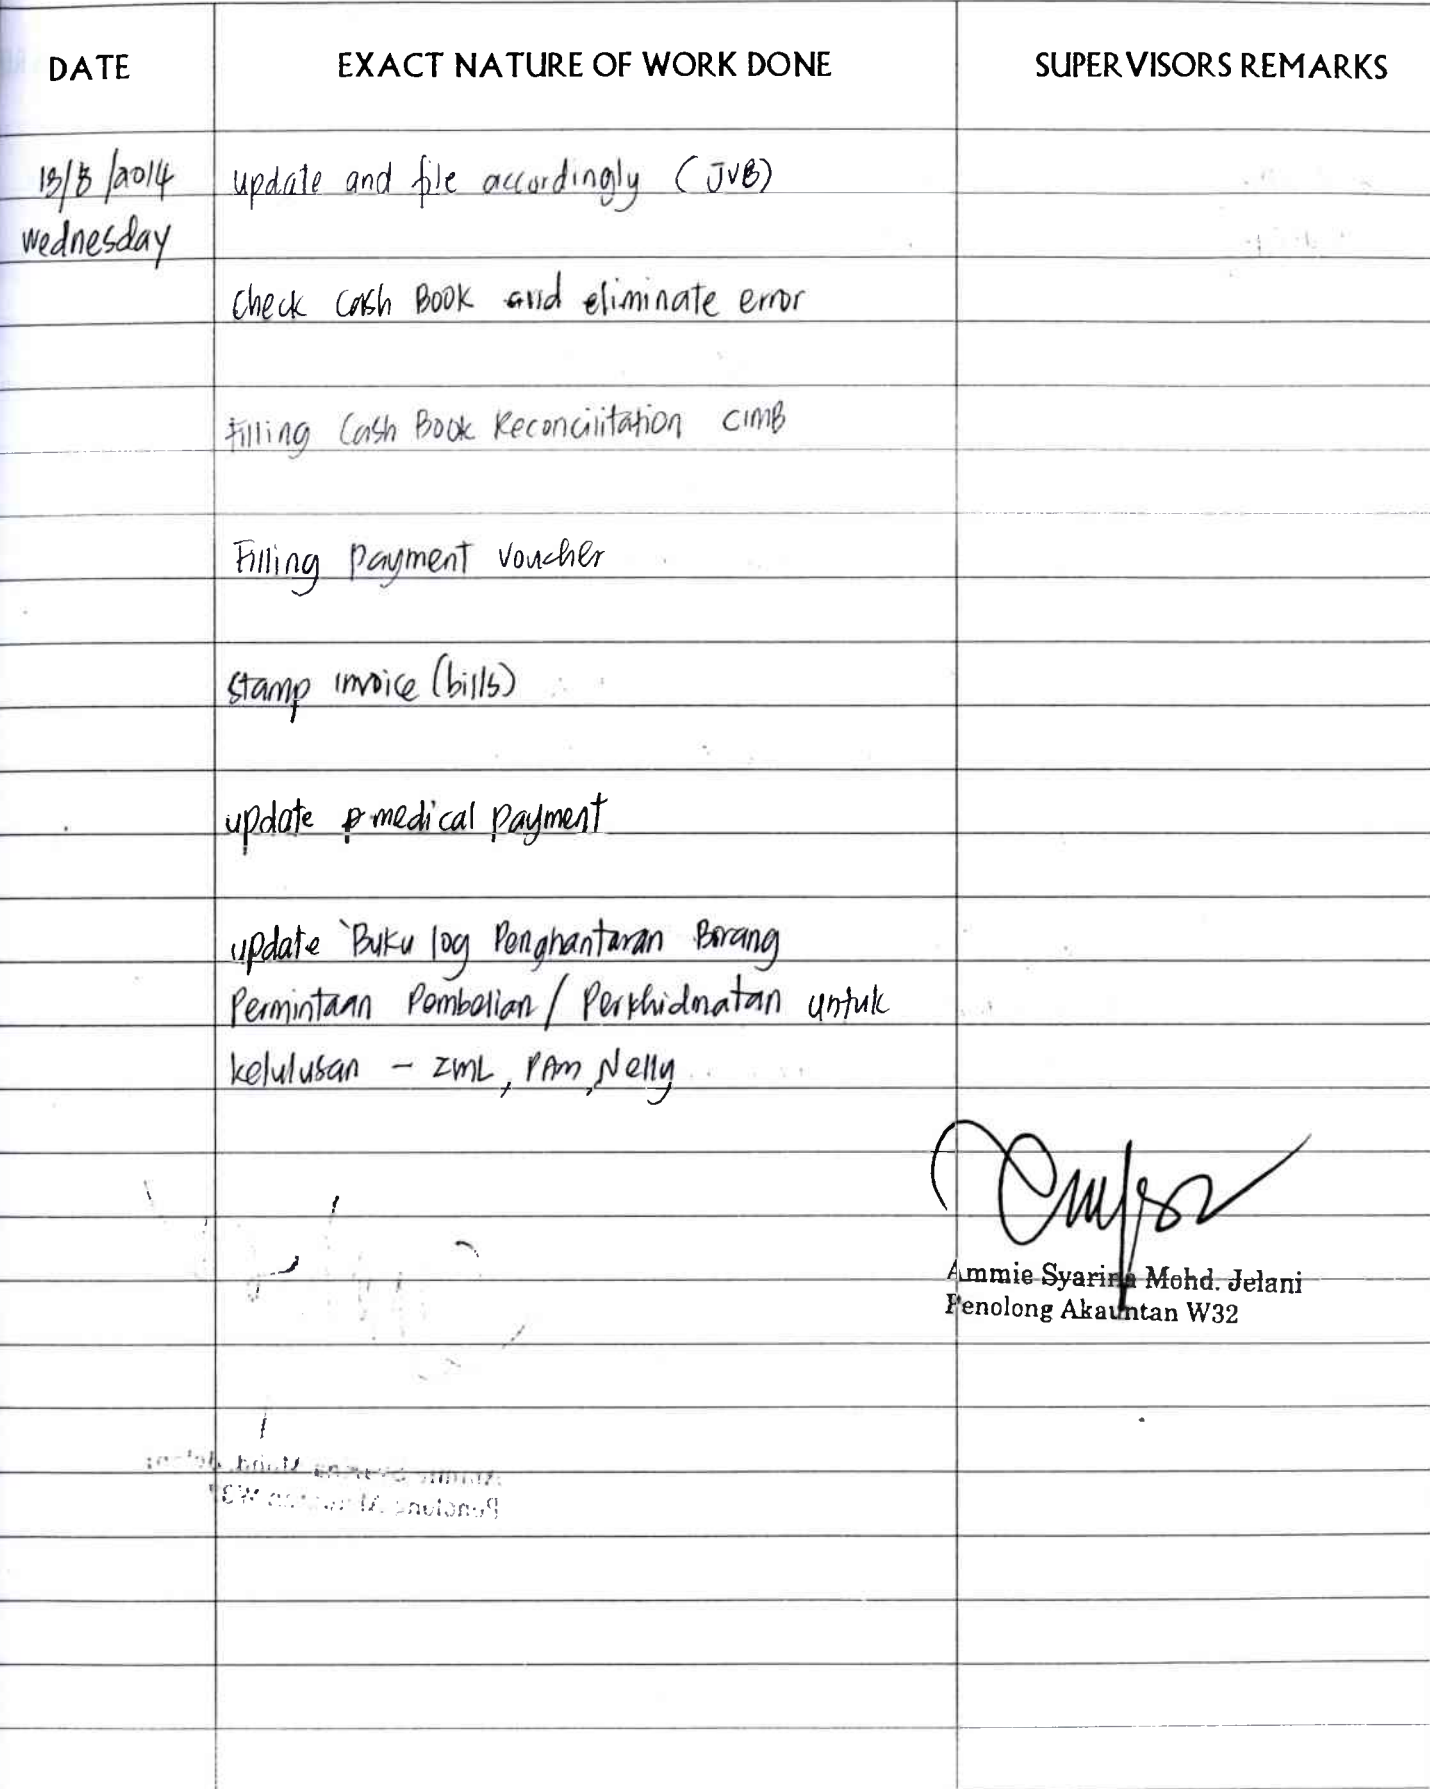 DATE EXACT NATURE OF WORK DONE SUPERVISORS REMARKS
13/8/2014 update and file accordingly (JVB)
wednesday
check cash Book and eliminate error
Filling Cash Book Reconcilitation CIMB
Filling payment voucher
stamp invoice (bills)
update medical payment
update `Buku log Penghantaran Borang
Permintaan Pembelian / Perkhidmatan untuk
kelulusan - ZML, PAM, Nelly
Ammie Syarina Mohd. Jelani
Penolong Akauntan W32